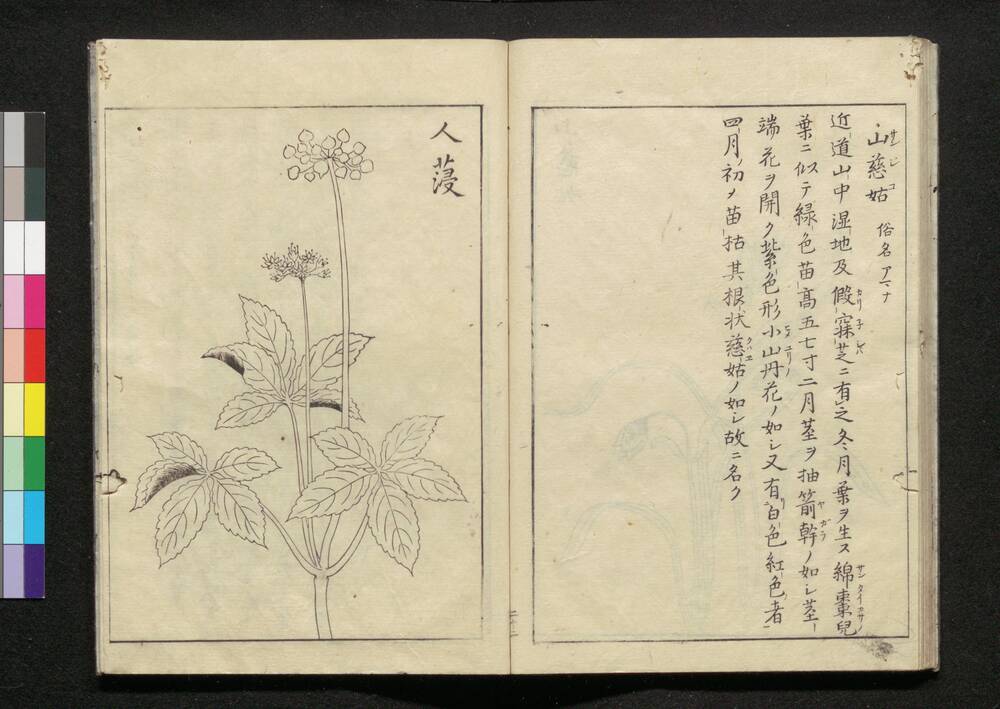 山慈姑 俗名アマナ
近道山中湿地及假寐芝ニ有之冬月葉ヲ生ス綿棗兒
葉ニ似テ緑色苗高五七寸二月茎ヲ抽箭幹ノ如シ茎
端花ヲ開ク紫色形小山丹花ノ如シ又有白色紅色者
四月初メ苗枯其根状慈姑ノ如シ故ニ名ク
人蓡